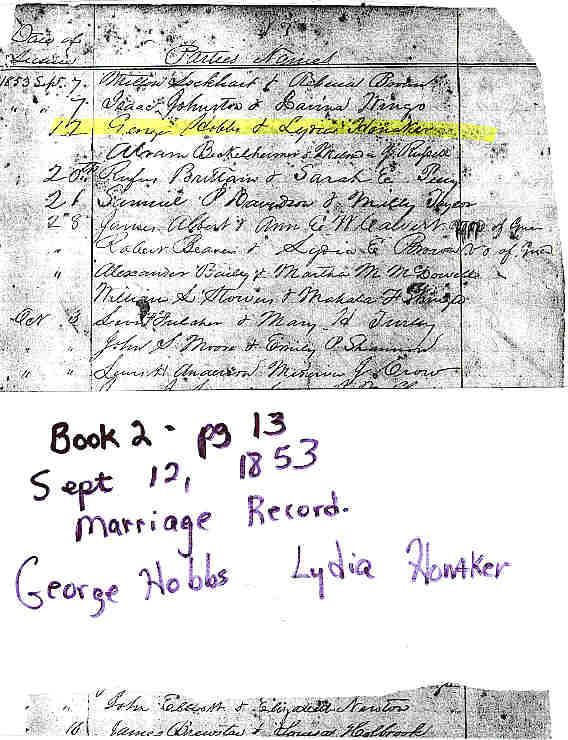 Date of
License Parties Names
1853 Sept. 7. Milton Lockhart & Rebecca
" " 7 Isaac Johnston & Lavina Wingo
12 George Hobbs & Lydia Honaker
Abram Beckelheimer &
20th Rufus Brittain & Sarah E.
26 Samuel P Davidson & Milly
28 James Albert & Ann E. W Calvert of
" Robert & Lydia E Brown of
" Alexander Bailey & Martha M McDowell
William L Stowers & Mahala
Oct 3 & Mary H
" " John S Moore & Emily P Shannon
" " Lewis H Anderson Minerva J Crow
Book 2 - pg 13
Sept 12, 1853
Marriage Record.
George Hobbs Lydia Honaker
" " John & Elizabeth Newton
" 16 James Brewster & Louisa Holbrook